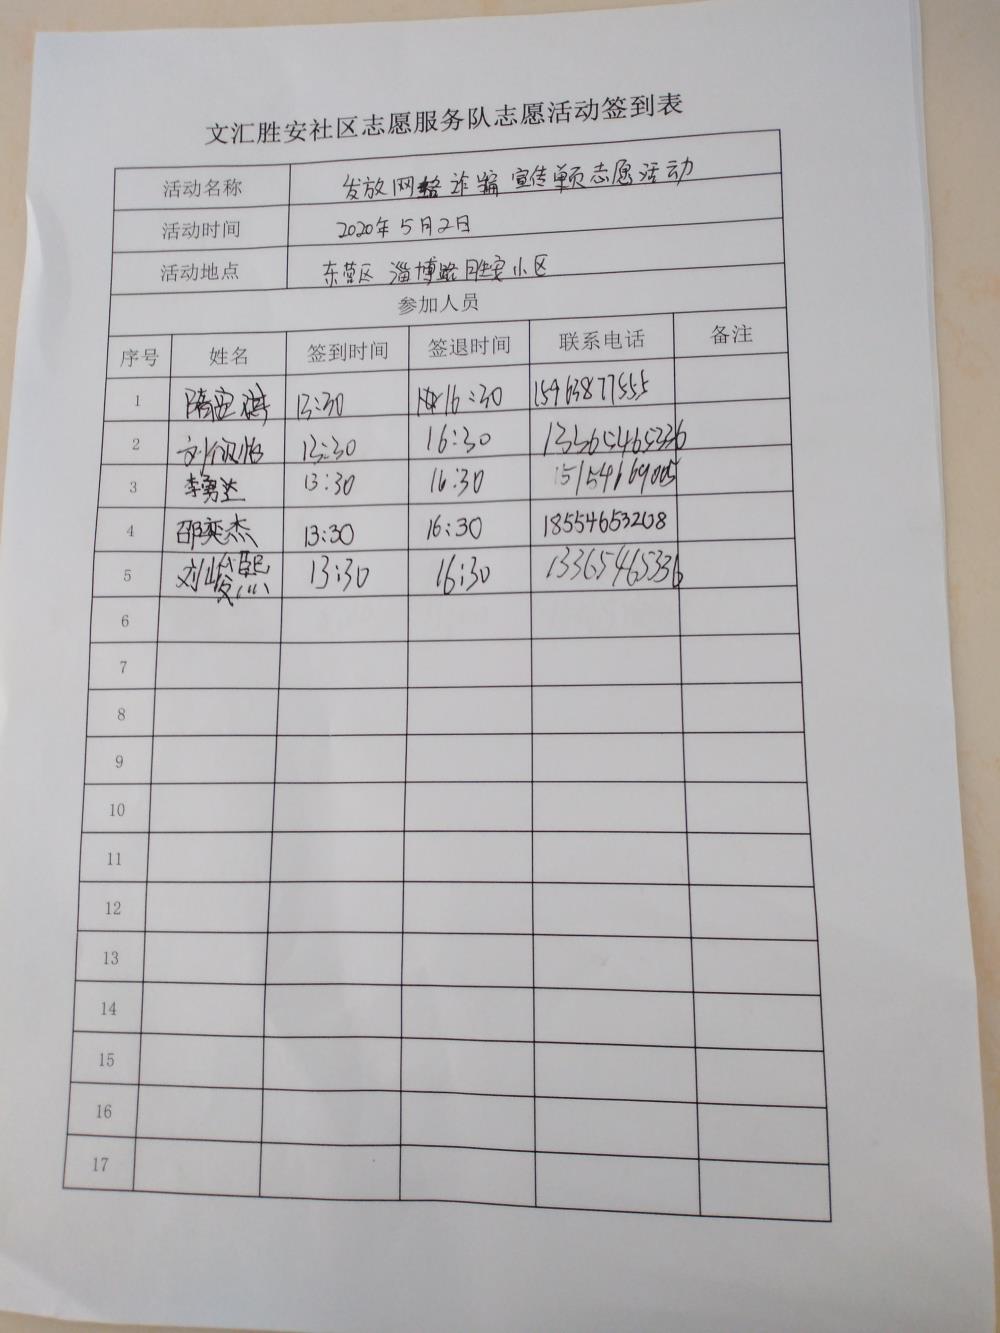 文汇胜安社区志愿服务队志愿活动签到表
活动名称 发放网络诈骗宣传单页志愿活动
活动时间 2020年5月2日
活动地点 东营区 淄博路胜安小区
参加人员
序号 姓名 签到时间 签退时间 联系电话 备注
1 13:30 16:30 15963877555
2 13:30 16:30 13365465336
3 李勇 13:30 16:30 15154669005
4 邵奕杰 13:30 16:30 18554653208
5 刘峻熙 13:30 16:30 13365465336
6
7
8
9
10
11
12
13
14
15
16
17